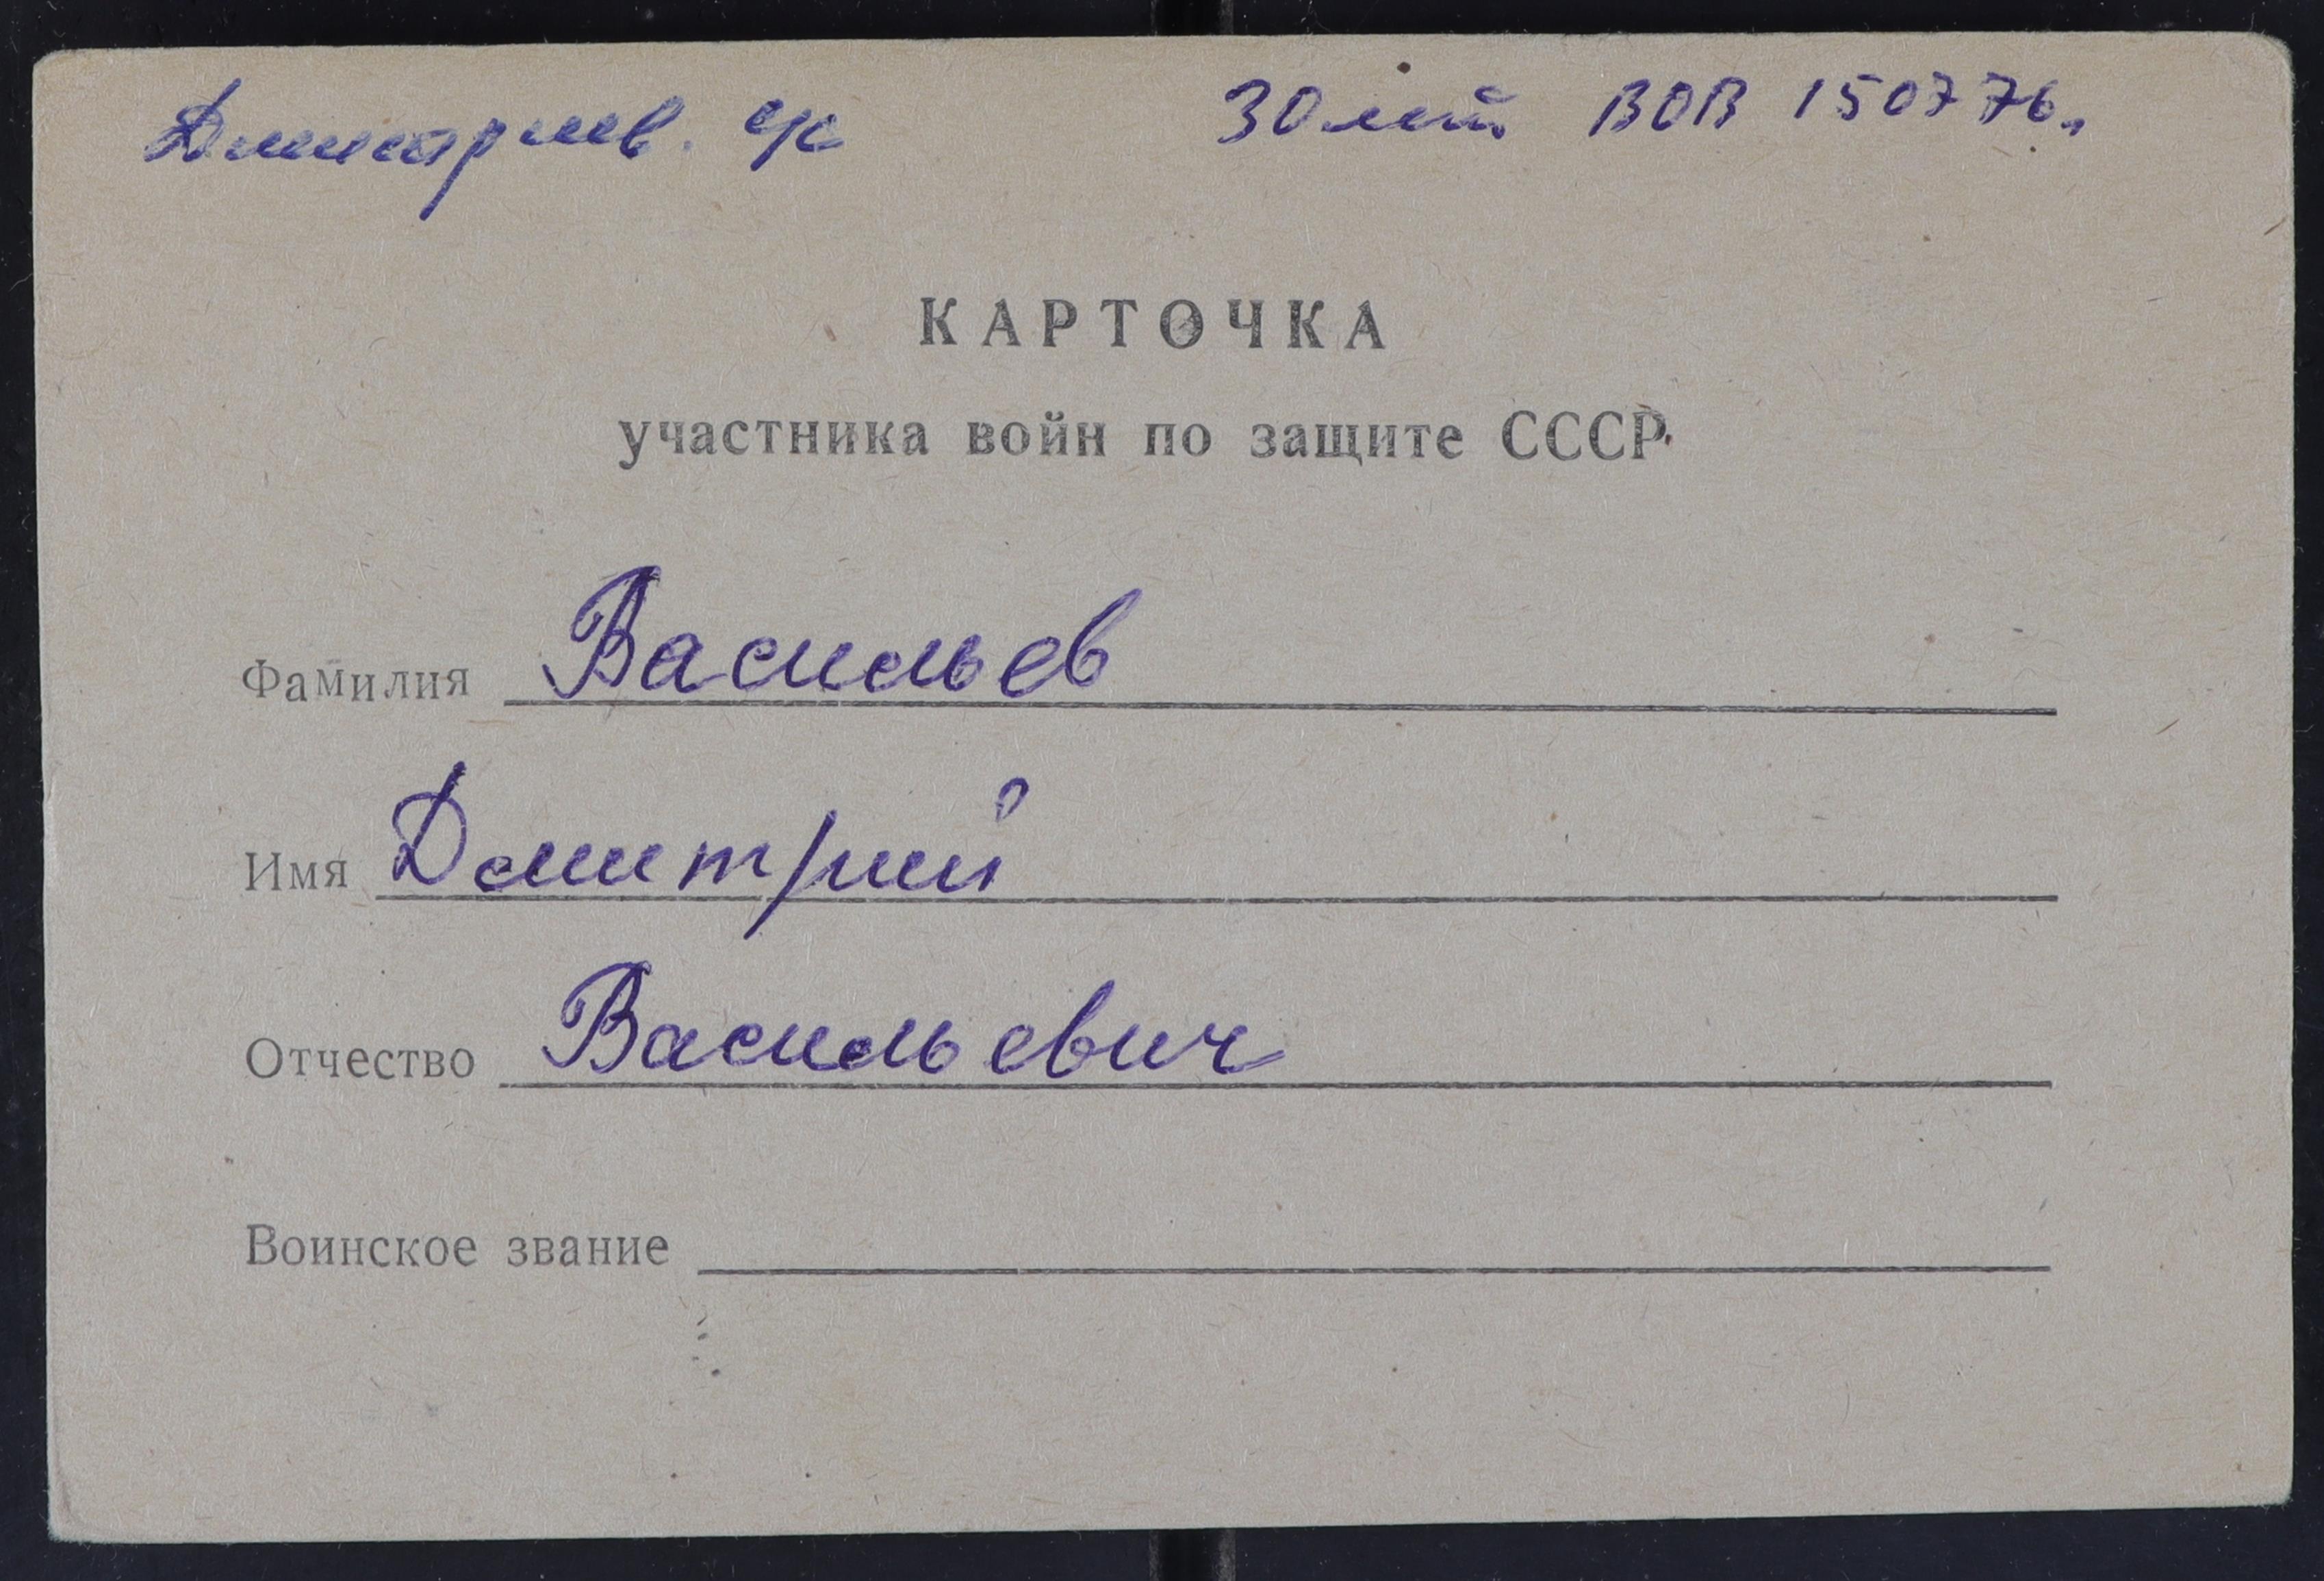 Дмитриев. с/с 30 лет ВОВ 150776.
КАРТОЧКА
участника войн по защите СССР
Фамилия Васильев
Имя Дмитрий
Отчество Васильевич
Воинское звание